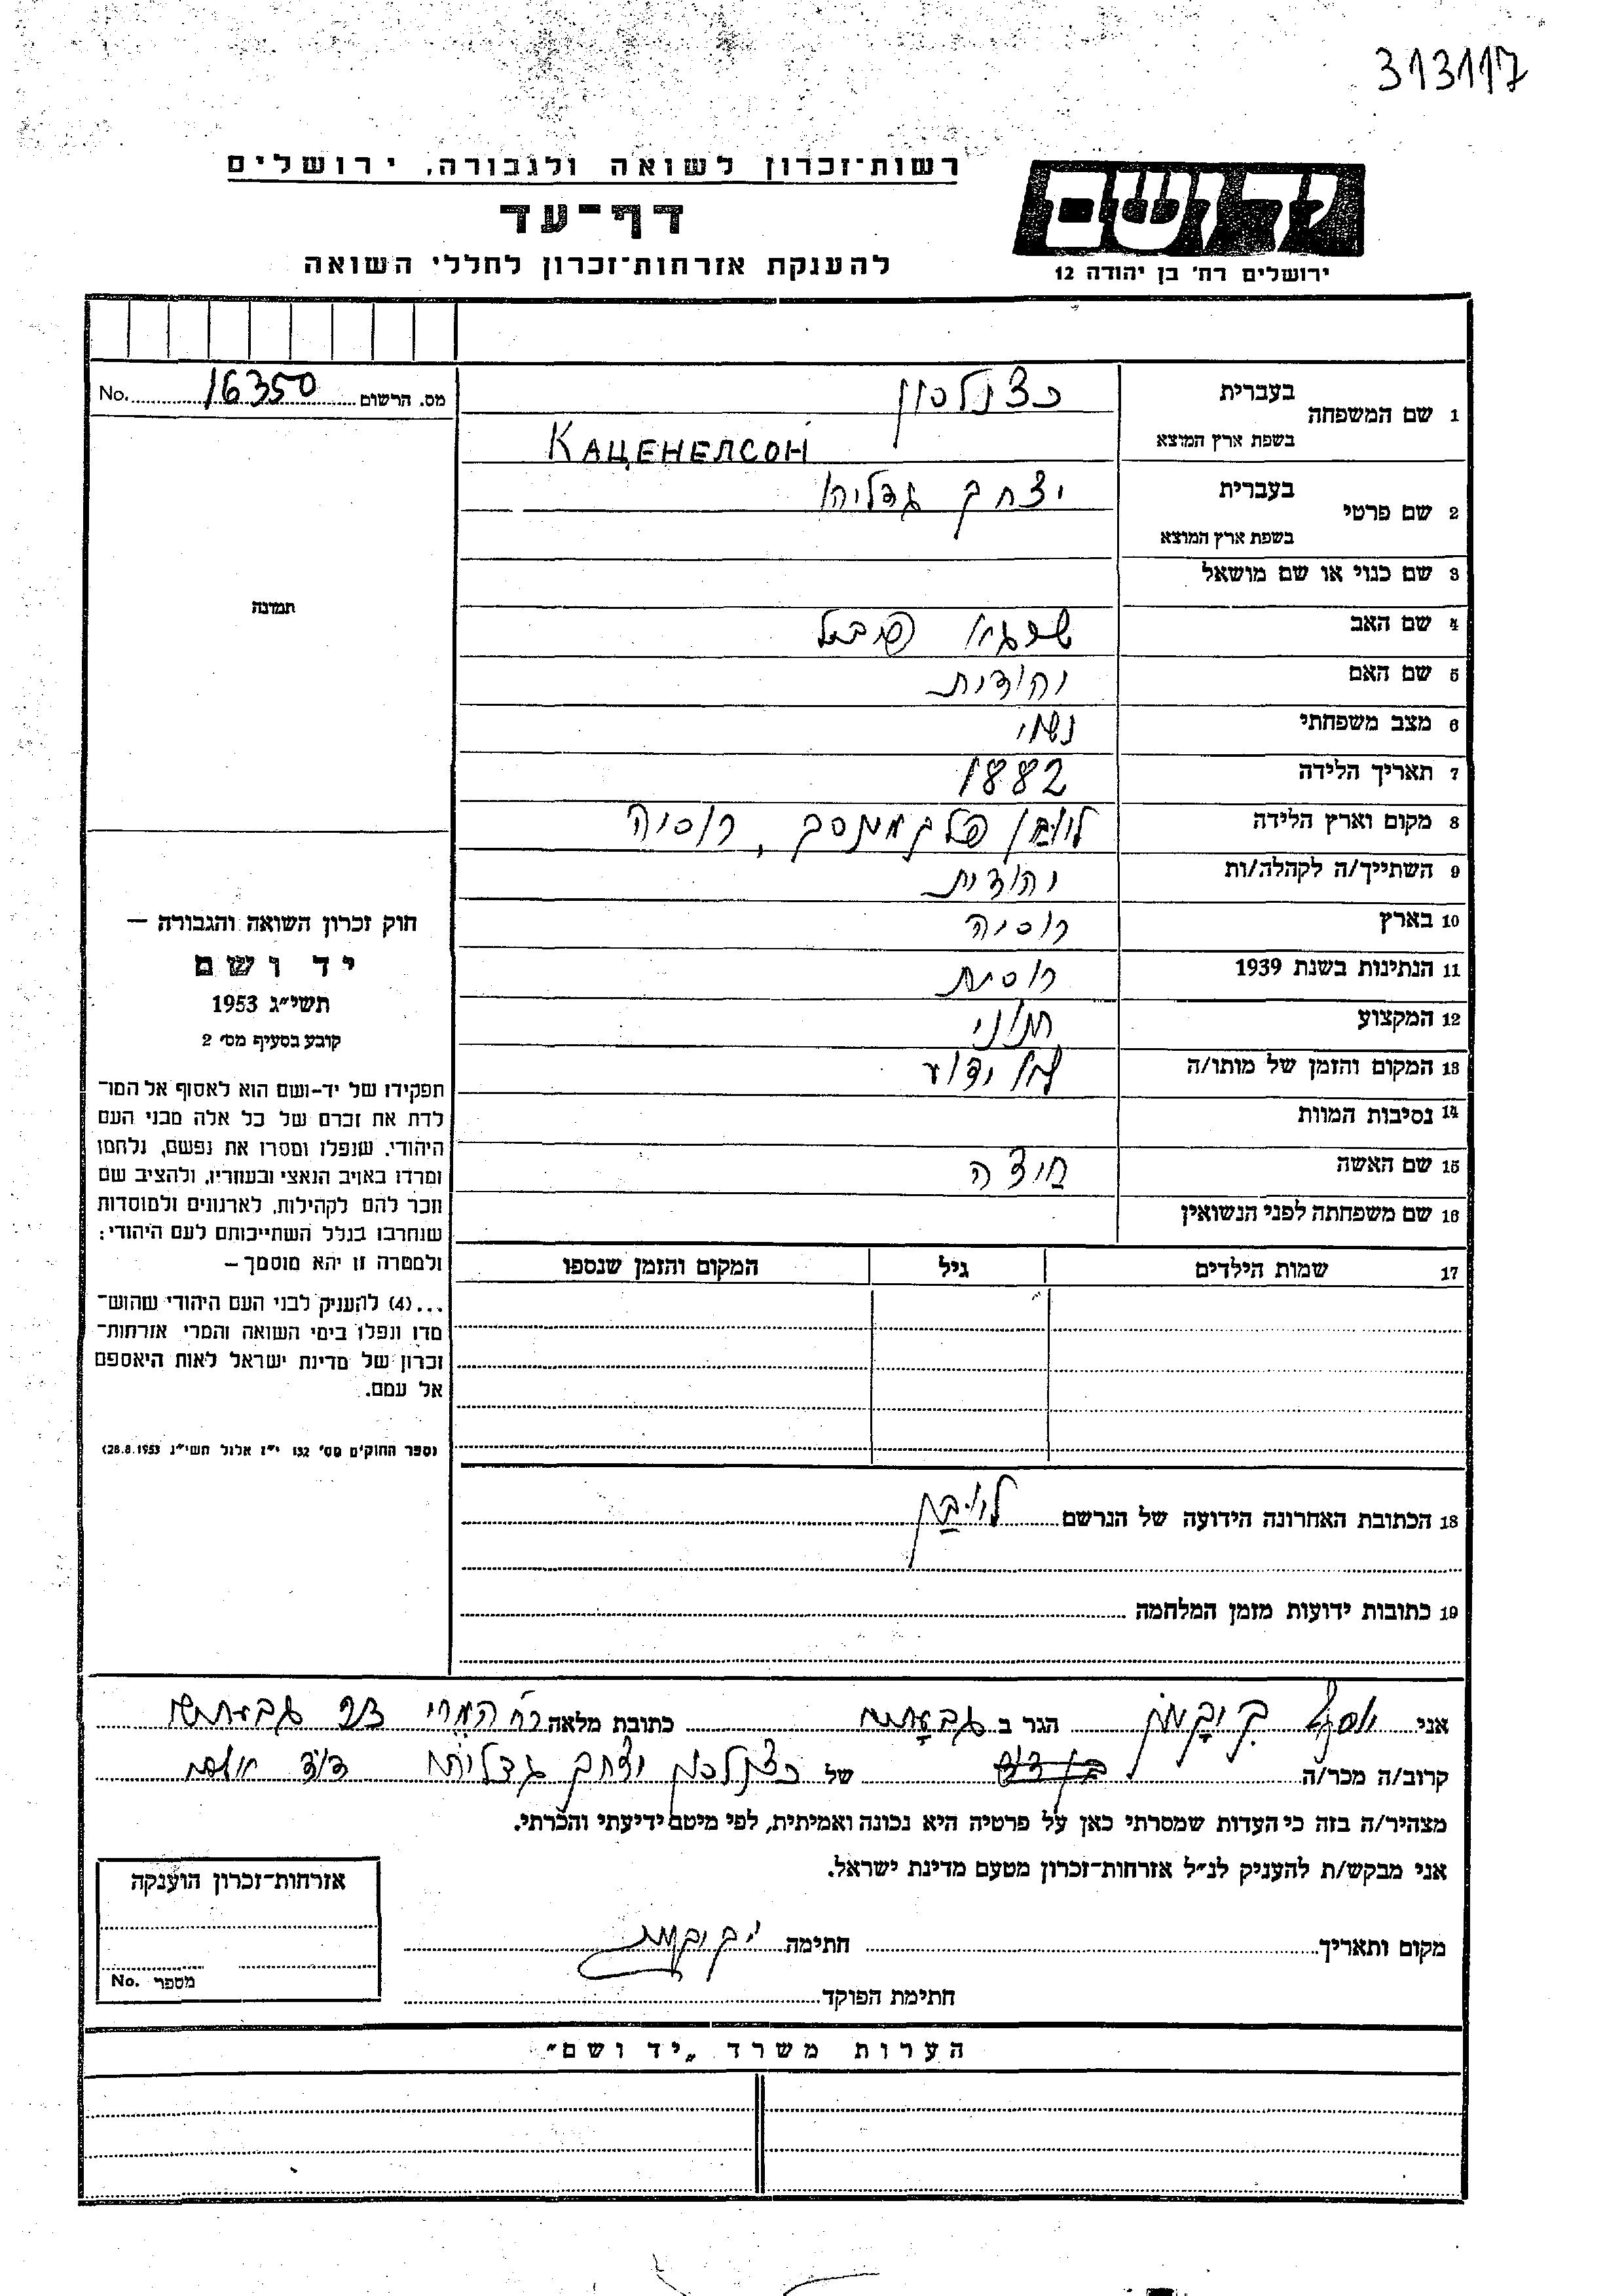 313117
רשות-זכרון לשואה ולגבורה, ירושלים
דף-עד
להענקת אזרחות-זכרון לחללי השואה
יד ושם
ירושלים רח' בן יהודה 12
מס. הרשום 16350 No.
1 שם המשפחה בעברית כצנלסון
בשפת ארץ המוצא КАЦЕНЕЛСОН
2 שם פרטי בעברית יצחק גדליהו
בשפת ארץ המוצא
3 שם כנוי או שם מושאל
4 שם האב
5 שם האם יהודית
6 מצב משפחתי נשוי
7 תאריך הלידה 1882
8 מקום וארץ הלידה פלך רוסיה
9 השתייך/ה לקהלה/ות יהודית
10 בארץ רוסיה
11 הנתינות בשנת 1939 רוסית
12 המקצוע חנוני
13 המקום והזמן של מותו/ה לא ידוע
14 נסיבות המוות
15 שם האשה
16 שם משפחתה לפני הנשואין
17 שמות הילדים גיל המקום והזמן שנספו
תמונה
חוק זכרון השואה והגבורה –
יד ושם
תשי״ג 1953
קובע בסעיף מס' 2
תפקידו של יד-ושם הוא לאסוף אל המו-
לדת את זכרם של כל אלה מבני העם
היהודי, שנפלו ומסרו את נפשם, נלחמו
ומרדו באויב הנאצי ובעוזריו, ולהציב שם
וזכר להם לקהילות, לארגונים ולמוסדות
שנחרבו בגלל השתייכותם לעם היהודי:
ולמטרה זו יהא מוסמך –
...(4) להעניק לבני העם היהודי שהוש-
מדו ונפלו בימי השואה והמרי אזרחות-
זכרון של מדינת ישראל לאות היאספם
אל עמם.
(ספר החוקים מס' 132 י״ז אלול תשי״ג 28.8.1953)
18 הכתובת האחרונה הידועה של הנרשם
19 כתובות ידועות מזמן המלחמה
אני הגר ב גבעתים כתובת מלאה רח' המרי גבעתים
קרוב/ה מכר/ה של כצנלסון יצחק גדליהו
מצהיר/ה בזה כי העדות שמסרתי כאן על פרטיה היא נכונה ואמיתית, לפי מיטב ידיעתי והכרתי.
אני מבקש/ת להעניק לנ״ל אזרחות-זכרון מטעם מדינת ישראל.
מקום ותאריך חתימה
חתימת הפוקד
אזרחות-זכרון הוענקה
מספר No.
הערות משרד „יד ושם״